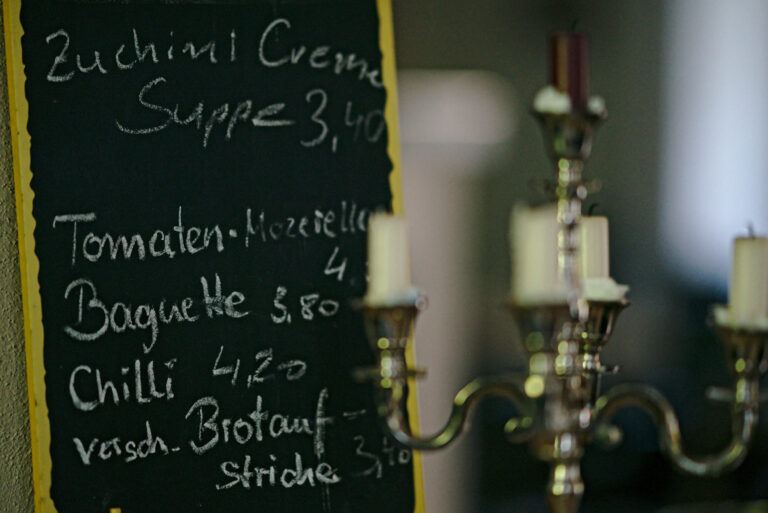 Zuchini Creme
Suppe 3,40
Tomaten-Mozerella
4,
Baguette 3,80
Chilli 4,20
versch. Brotauf-
striche 3,40